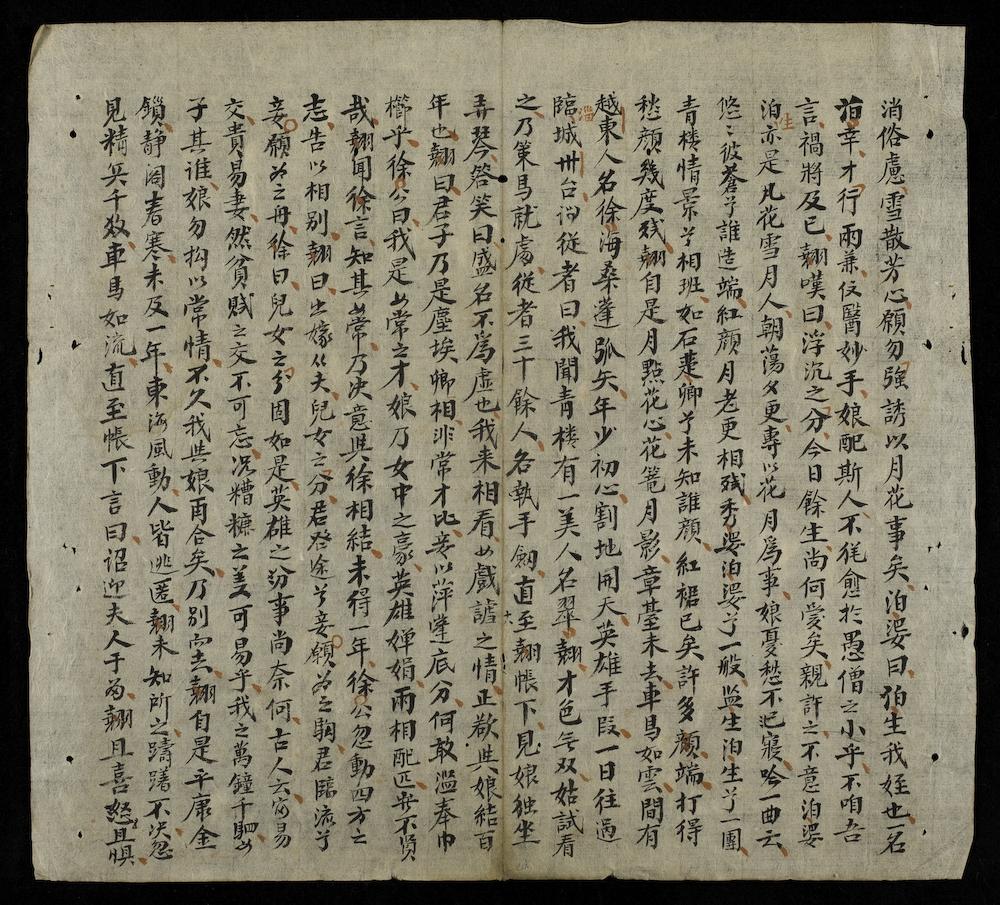 消俗慮雪散芳心願勿強誘以月花事矣泊婆曰狛生我姪也一名
泊幸才行兩兼仗醫妙手娘配斯人不徒愈於愚僧之小乎不咱吾
言禍將及已翹嘆曰浮沉之分今日餘生尚何愛矣親許之不意泊婆
泊生亦是凡花雪月人朝蕩夕更專以花月爲事娘憂愁不已寢吟一曲云
悠悠彼蒼兮誰造端紅顏月老更相残秀婆泊婆兮一般监生泊生兮一團
青楼情景兮相班如石蹇卿兮未知誰顔紅裙已矣許多顔端打得
愁顏幾度残翹自是月點花心花篭月影章基未去車馬如雲間有
越東人名徐海桑蓬弧矢年少初心割地開天英雄手段一日往過
臨淄城卅台问從者曰我聞青楼有一美人名翠翹才色無双姑試看
之乃策馬就處從者三十餘人各執手劍直至翹帳下見娘独坐
弄琴答笑曰盛名不爲虛也我来相看如戲謔之情正欲與娘結百
年也翹曰君子乃是塵埃卿相非常才比妾以萍蓬底分何敢濫奉巾
櫛乎徐公曰我是如常之才娘乃女中之豪英雄嬋娟兩相配匹豈不賢
哉翹聞徐言知其如常乃决意與徐相結未得一年徐公忽動四方之
志告以相别翹曰出嫁从夫兒女之分君登途兮妾願为之駒君臨流兮
妾願为之舟徐曰兒女之分固如是英雄之分事尚奈何古人云富易
交貴易妻然貧賤之交不可忘况糟糠之美可易乎我之萬鐘千駟如
子其誰娘勿拘以常情不久我與娘再合矣乃别而去翹自是平康金
鎖静闺春寒未及一年東海風動人皆逃匿翹未知所之躊躇不决忽
見精兵千数車馬如流直至帳下言曰詔迎夫人于爲翹且喜怒且惧